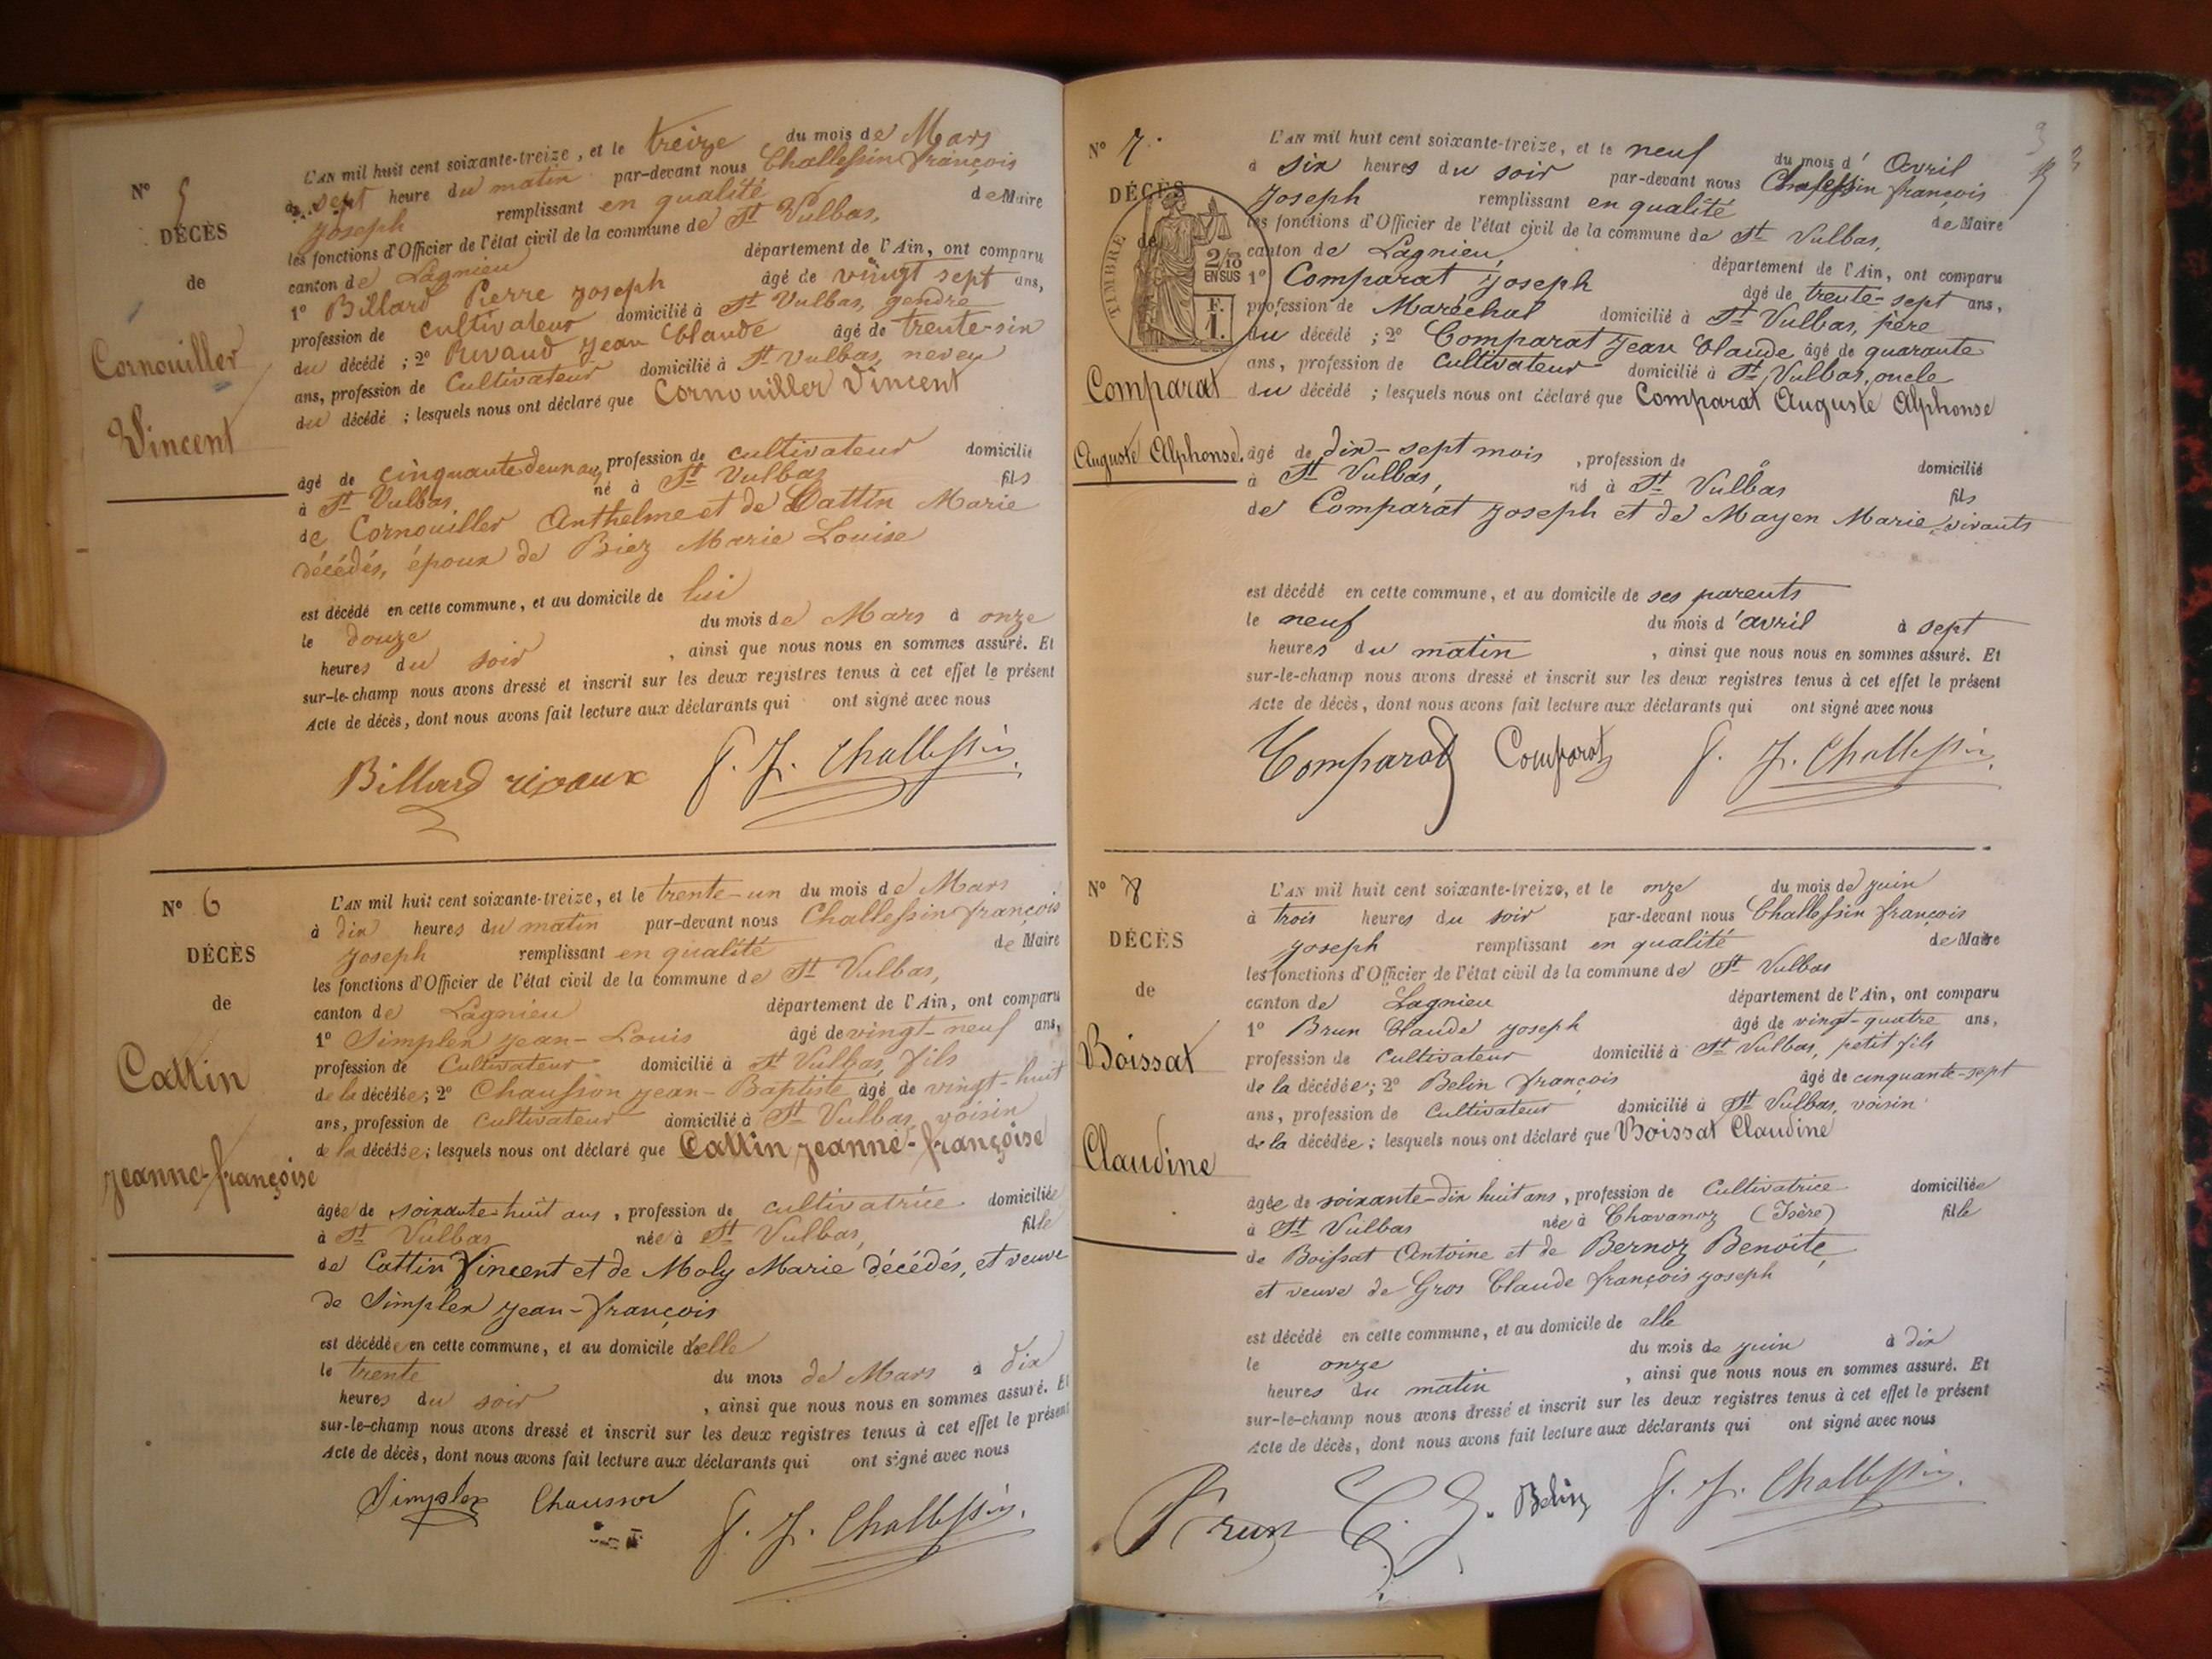 N° 5
DÉCÈS
de
Cornouiller
Vincent
L'AN mil huit cent soixante-treize, et le treize du mois de Mars
à sept heure du matin par-devant nous Challessin françois
Joseph remplissant en qualité de Maire
les fonctions d'Officier de l'état civil de la commune de St Vulbas,
canton de Lagnieu département de l'Ain, ont comparu
1° Billard Pierre Joseph âgé de vingt sept ans,
profession de cultivateur domicilié à St Vulbas, gendre
du décédé ; 2° Rivaud Jean Claude âgé de trente-six
ans, profession de Cultivateur domicilié à St Vulbas, neveu
du décédé ; lesquels nous ont déclaré que Cornouiller Vincent
âgé de cinquante deux ans, profession de cultivateur domicilié
à St Vulbas né à St Vulbas fils
de Cornouiller Anthelme et de Cattin Marie
décédés, époux de Biez Marie Louise
est décédé en cette commune, et au domicile de lui
le douze du mois de Mars à onze
heures du soir , ainsi que nous nous en sommes assuré. Et
sur-le-champ nous avons dressé et inscrit sur les deux registres tenus à cet effet le présent
Acte de décès, dont nous avons fait lecture aux déclarants qui ont signé avec nous
Billard rivaux F. J. Challessin
N° 6
DÉCÈS
de
Cattin
Jeanne-françoise
L'AN mil huit cent soixante-treize, et le trente-un du mois de Mars
à dix heures du matin par-devant nous Challessin françois
Joseph remplissant en qualité de Maire
les fonctions d'Officier de l'état civil de la commune de St Vulbas,
canton de Lagnieu département de l'Ain, ont comparu
1° Simplex Jean-Louis âgé de vingt-neuf ans,
profession de Cultivateur domicilié à St Vulbas, fils
de la décédée; 2° Chausson Jean-Baptiste âgé de vingt-huit
ans, profession de cultivateur domicilié à St Vulbas, voisin
de la décédée; lesquels nous ont déclaré que Cattin Jeanne-françoise
âgée de soixante-huit ans, profession de cultivatrice domiciliée
à St Vulbas née à St Vulbas, fille
de Cattin Vincent et de Moly Marie décédés, et veuve
de Simplex Jean-françois
est décédée en cette commune, et au domicile d'elle
le trente du mois de Mars à dix
heures du soir , ainsi que nous nous en sommes assuré. Et
sur-le-champ nous avons dressé et inscrit sur les deux registres tenus à cet effet le présent
Acte de décès, dont nous avons fait lecture aux déclarants qui ont signé avec nous
Simplex Chausson F. J. Challessin.
N° 7.
DÉCÈS
de
TIMBRE
2/10
EN SUS
F.
1.
Comparat
Auguste Alphonse.
L'AN mil huit cent soixante-treize, et le neuf du mois d' Avril
à six heures du soir par-devant nous Challessin françois
Joseph remplissant en qualité de Maire
les fonctions d'Officier de l'état civil de la commune de St Vulbas,
canton de Lagnieu, département de l'Ain, ont comparu
1° Comparat Joseph âgé de trente-sept ans,
profession de Maréchal domicilié à St Vulbas, père
du décédé ; 2° Comparat Jean Claude âgé de quarante
ans, profession de cultivateur domicilié à St Vulbas, oncle
du décédé ; lesquels nous ont déclaré que Comparat Auguste Alphonse
âgé de dix-sept mois , profession de domicilié
à St Vulbas, né à St Vulbas fils
de Comparat Joseph et de Mayen Marie, vivants
est décédé en cette commune, et au domicile de ses parents
le neuf du mois d'avril à sept
heures du matin , ainsi que nous nous en sommes assuré. Et
sur-le-champ nous avons dressé et inscrit sur les deux registres tenus à cet effet le présent
Acte de décès, dont nous avons fait lecture aux déclarants qui ont signé avec nous
Comparat Comparat F. J. Challessin.
N° 8
DÉCÈS
de
Boissat
Claudine
L'AN mil huit cent soixante-treize, et le onze du mois de juin
à trois heures du soir par-devant nous Challessin françois
Joseph remplissant en qualité de Maire
les fonctions d'Officier de l'état civil de la commune de St Vulbas
canton de Lagnieu département de l'Ain, ont comparu
1° Brun Claude Joseph âgé de vingt-quatre ans,
profession de cultivateur domicilié à St Vulbas, petit fils
de la décédée; 2° Belin françois âgé de cinquante-sept
ans, profession de Cultivateur domicilié à St Vulbas, voisin
de la décédée; lesquels nous ont déclaré que Boissat Claudine
âgée de soixante-dix huit ans, profession de Cultivatrice domiciliée
à St Vulbas née à Chavanoz (Isère) fille
de Boissat Antoine et de Bernoz Benoîte,
et veuve de Gros Claude françois Joseph
est décédé en cette commune, et au domicile de elle
le onze du mois de juin à dix
heures du matin , ainsi que nous nous en sommes assuré. Et
sur-le-champ nous avons dressé et inscrit sur les deux registres tenus à cet effet le présent
Acte de décès, dont nous avons fait lecture aux déclarants qui ont signé avec nous
Brun C. J. Belin F. J. Challessin.